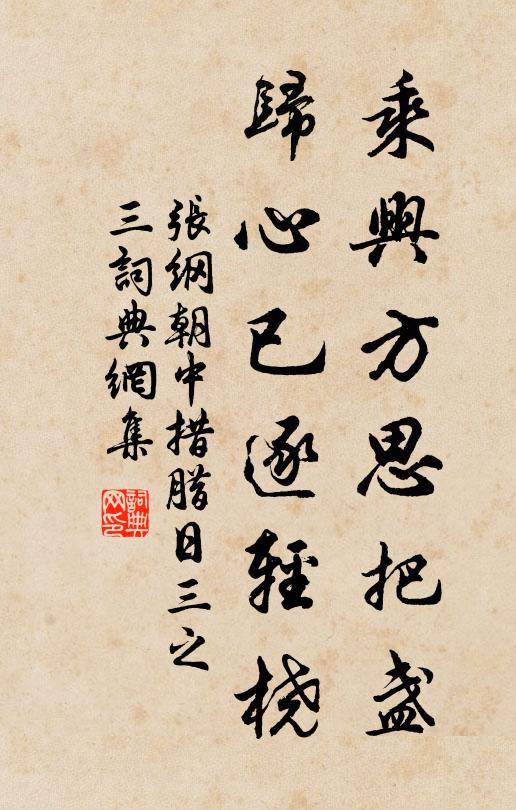 乘興方思把盏
歸心已逐輕桡
張綱朝中措腊日三之
三詞典網集
詞典网印